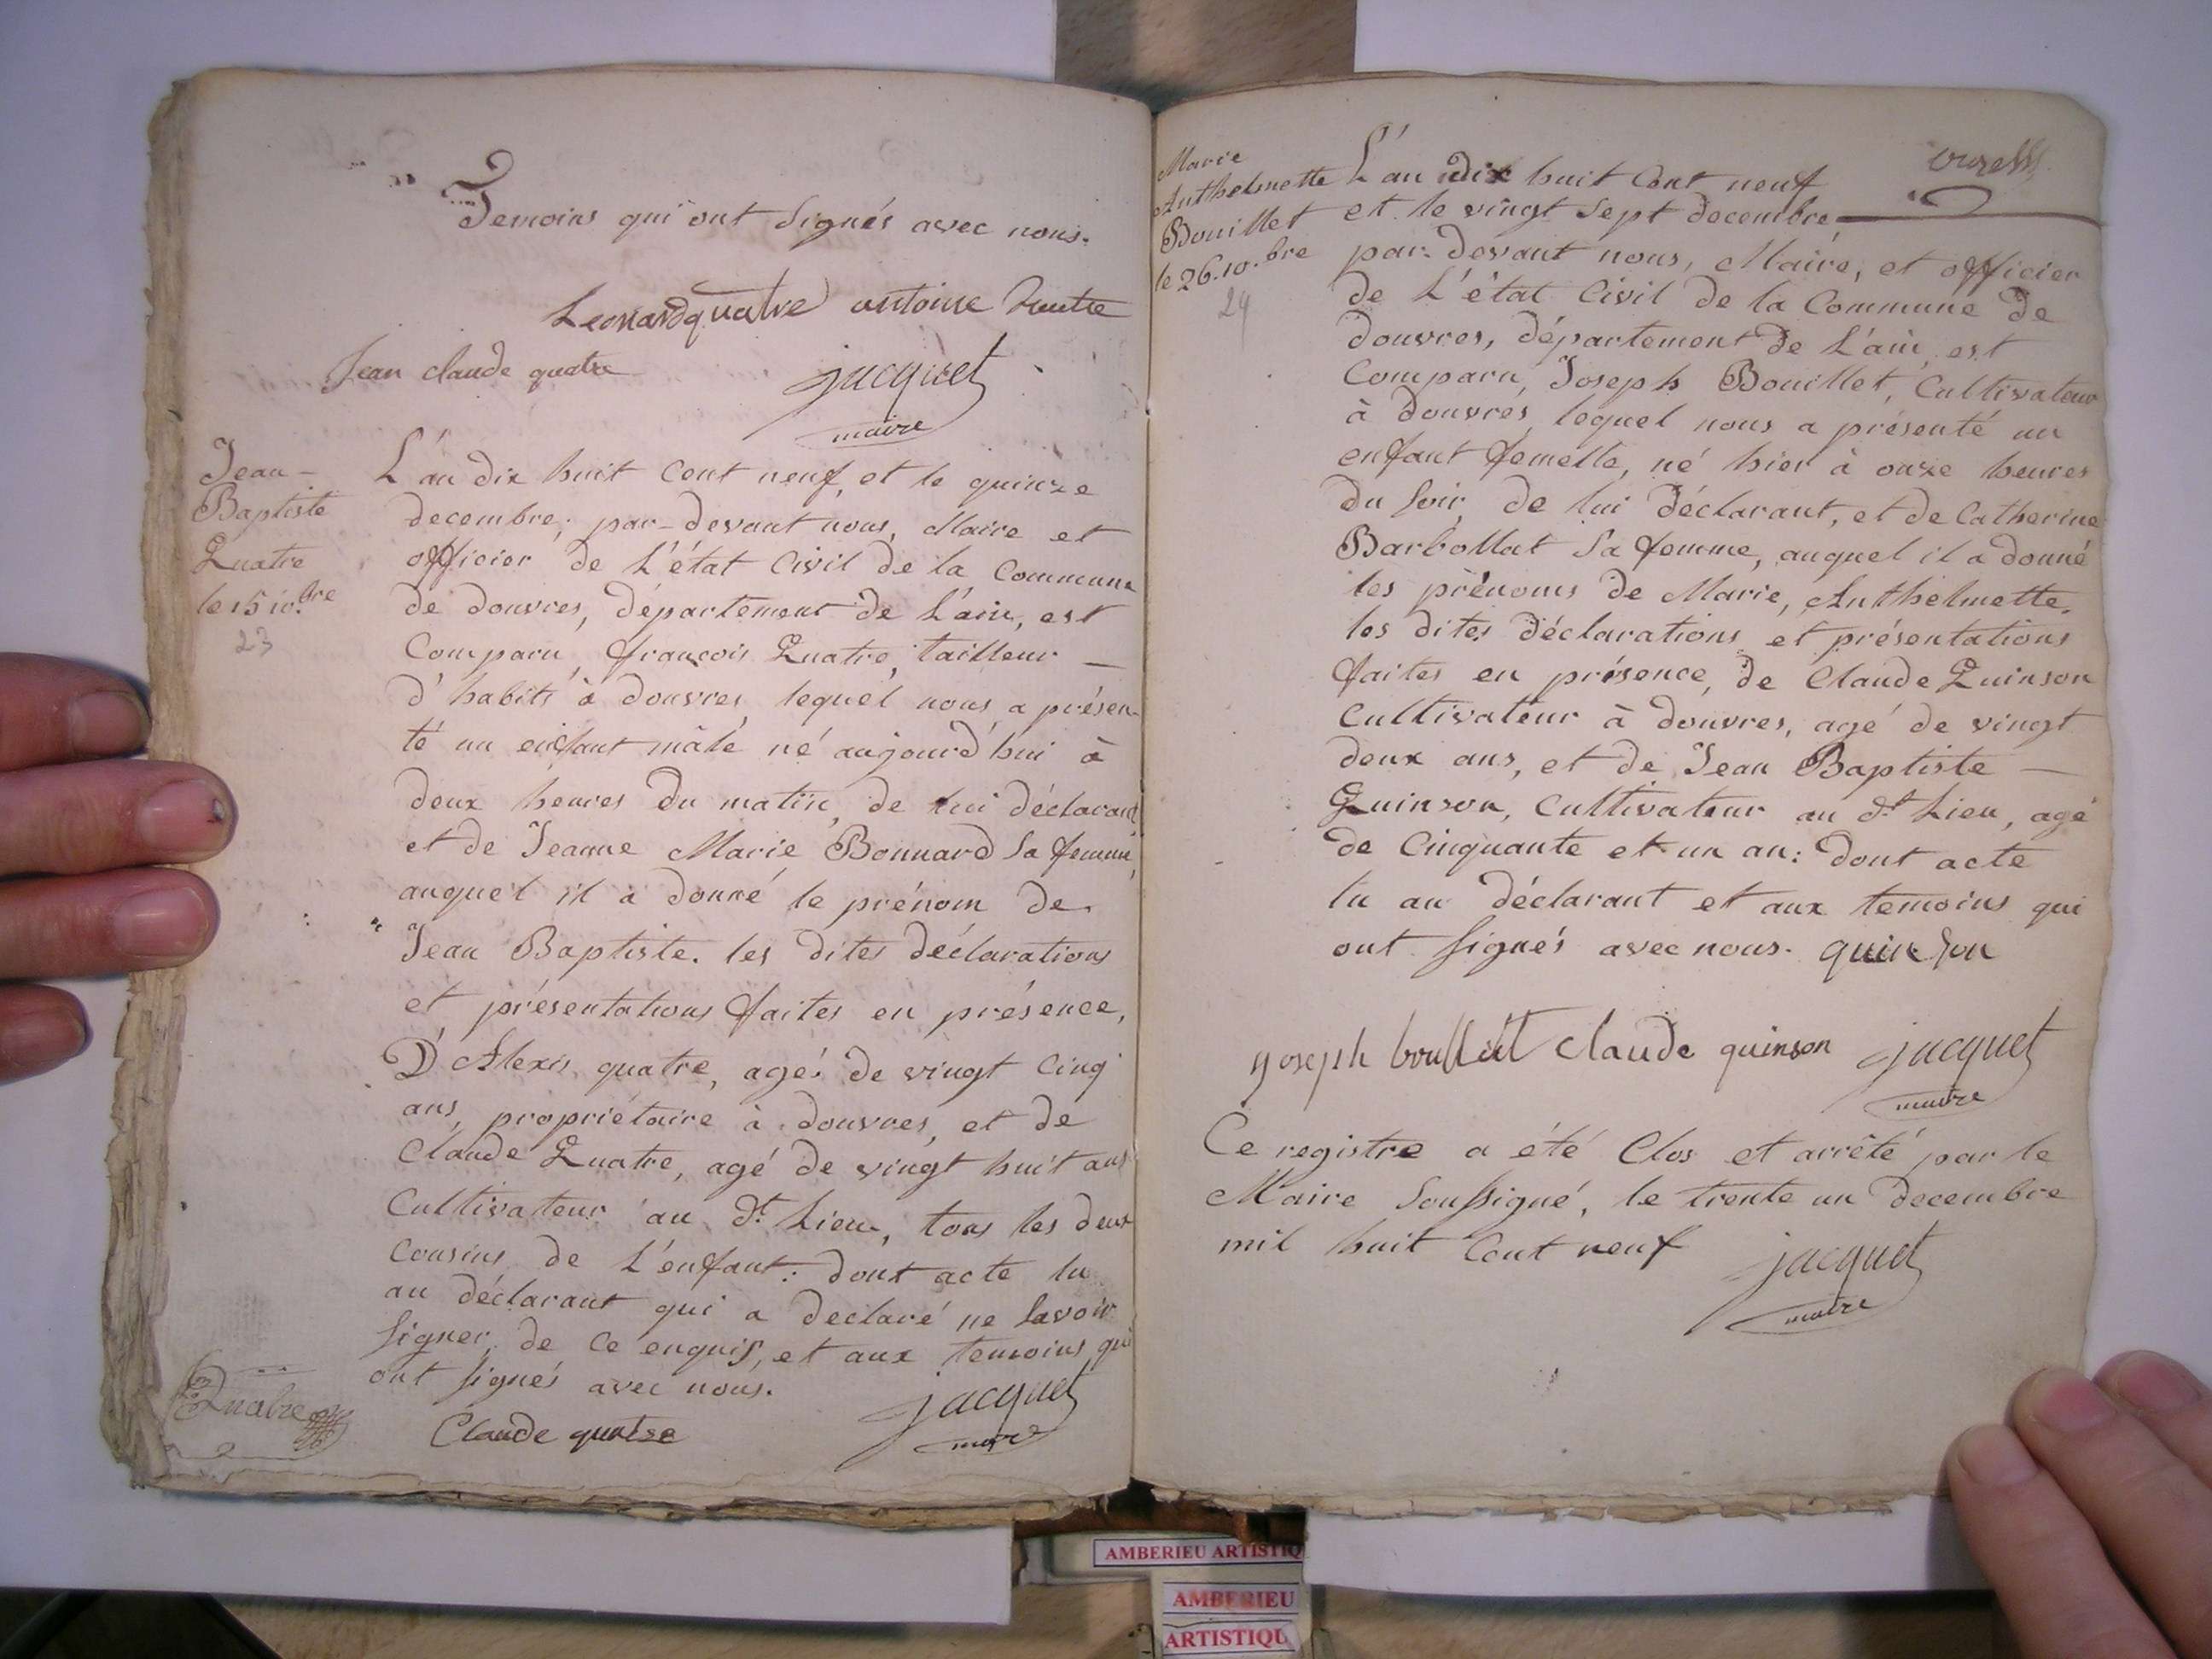 Temoins qui ont Signés avec nous.
Leonard quatre antoine
Jean claude quatre
jacquet
maire
Jean-
Baptiste
Quatre
le 15 10.bre
23
L'an dix huit cent neuf, et le quinze
decembre; par-devant nous, Maire et
officier de L'état Civil de la Commune
de douvres, département de L'ain, est
Comparu, françois Quatre, tailleur —
d'habits à douvres, lequel nous a présen-
té un enfant mâle né aujourd'hui à
deux heures du matin, de lui déclarant
et de Jeanne Marie Bonnard Sa femme,
auquel il a donné le prénom de
Jean Baptiste. les dites déclarations
et présentations faites en présence,
D'Alexis quatre, agés de vingt Cinq
ans, propriétaire à douvres, et de
Claude Quatre, agé de vingt huit ans
Cultivateur au d.t Lieu, tous les deux
Cousins de L'enfant: dont acte lu
au déclarant qui a declaré ne Savoir
Signer, de Ce enquis, et aux temoins qui
ont Signés avec nous.
Quatre
Claude quatre
jacquet
maire
Marie
Anthelmette
Bouillet
le 26. 10.bre
24
L'an dix huit Cent neuf
et le vingt Sept decembre,
par-devant nous, Maire, et officier
de L'état Civil de la Commune de
douvres, département de L'ain, est
Comparu, Joseph Bouillet, Cultivateur
à douvres, lequel nous a présenté un
enfant femelle, né hier à onze heures
du Soir, de lui déclarant, et de Catherine
Barbollat Sa femme, auquel il a donné
les prénoms de Marie, Anthelmette.
les dites déclarations et présentations
faites en présence, de Claude Quinson
Cultivateur à douvres, agé de vingt
deux ans, et de Jean Baptiste —
Quinson, Cultivateur au d.t Lieu, agé
de Cinquante et un an: dont acte
lu au déclarant et aux temoins qui
ont Signés avec nous. quinson
joseph Claude quinson jacquet
maire
Ce registre a été Clos et arrêté par le
Maire Soussigné, le trente un decembre
mil huit Cent neuf
jacquet
maire
AMBERIEU ARTISTIQ
AMBERIEU
ARTISTIQU